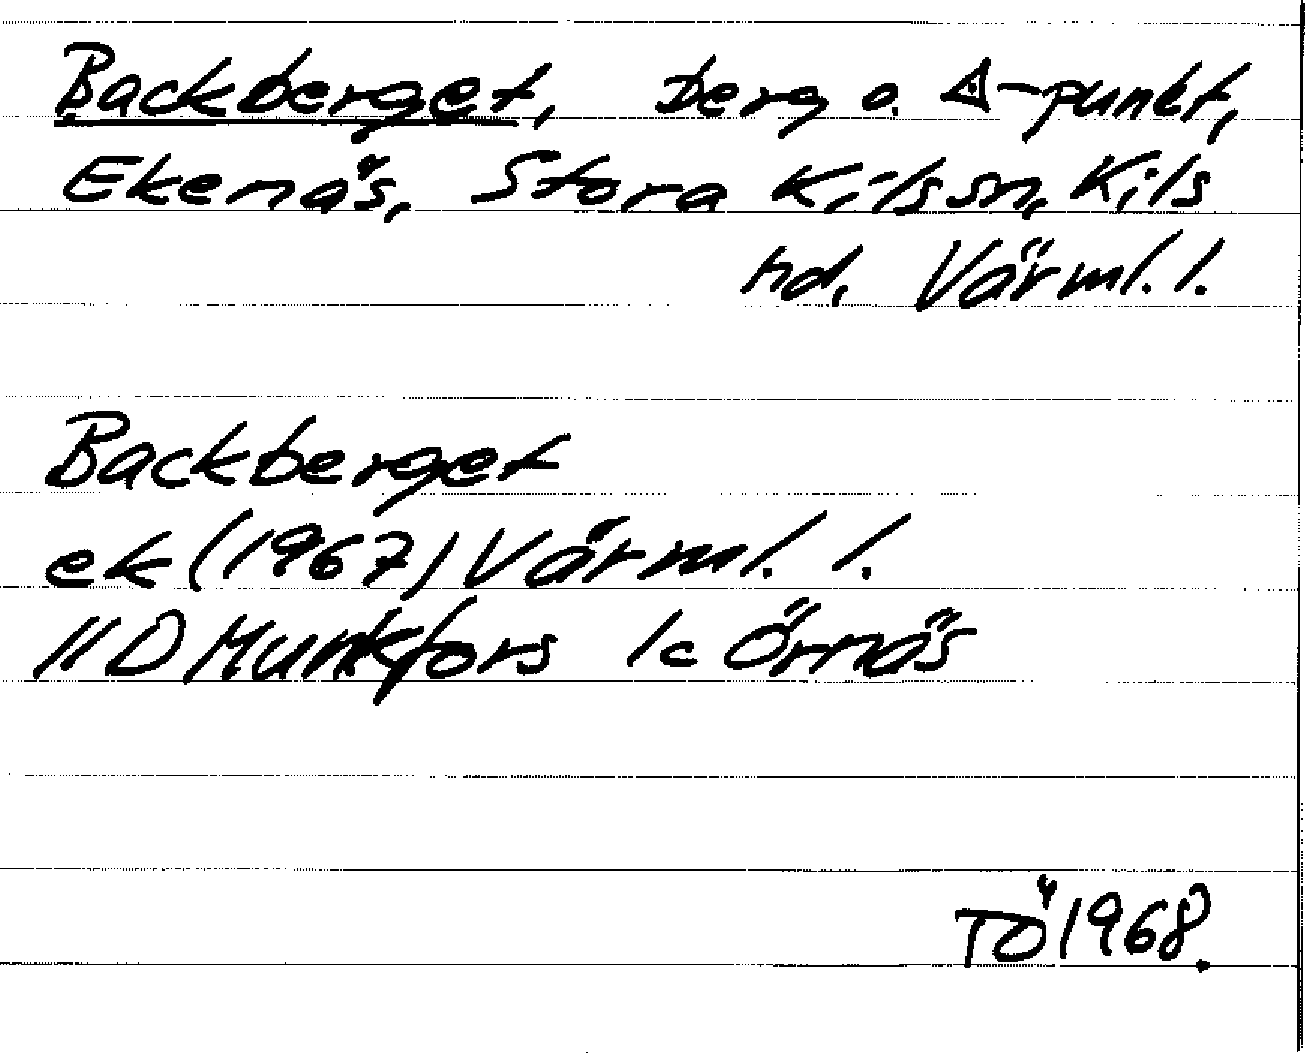 Backberget, berg o. △-punkt,
Ekenäs, Stora Kilssn, Kils
hd, Värml. l.
Backberget
ek (1967) Värml. l.
11D Munkfors 1c Örnäs
TÖ 1968.